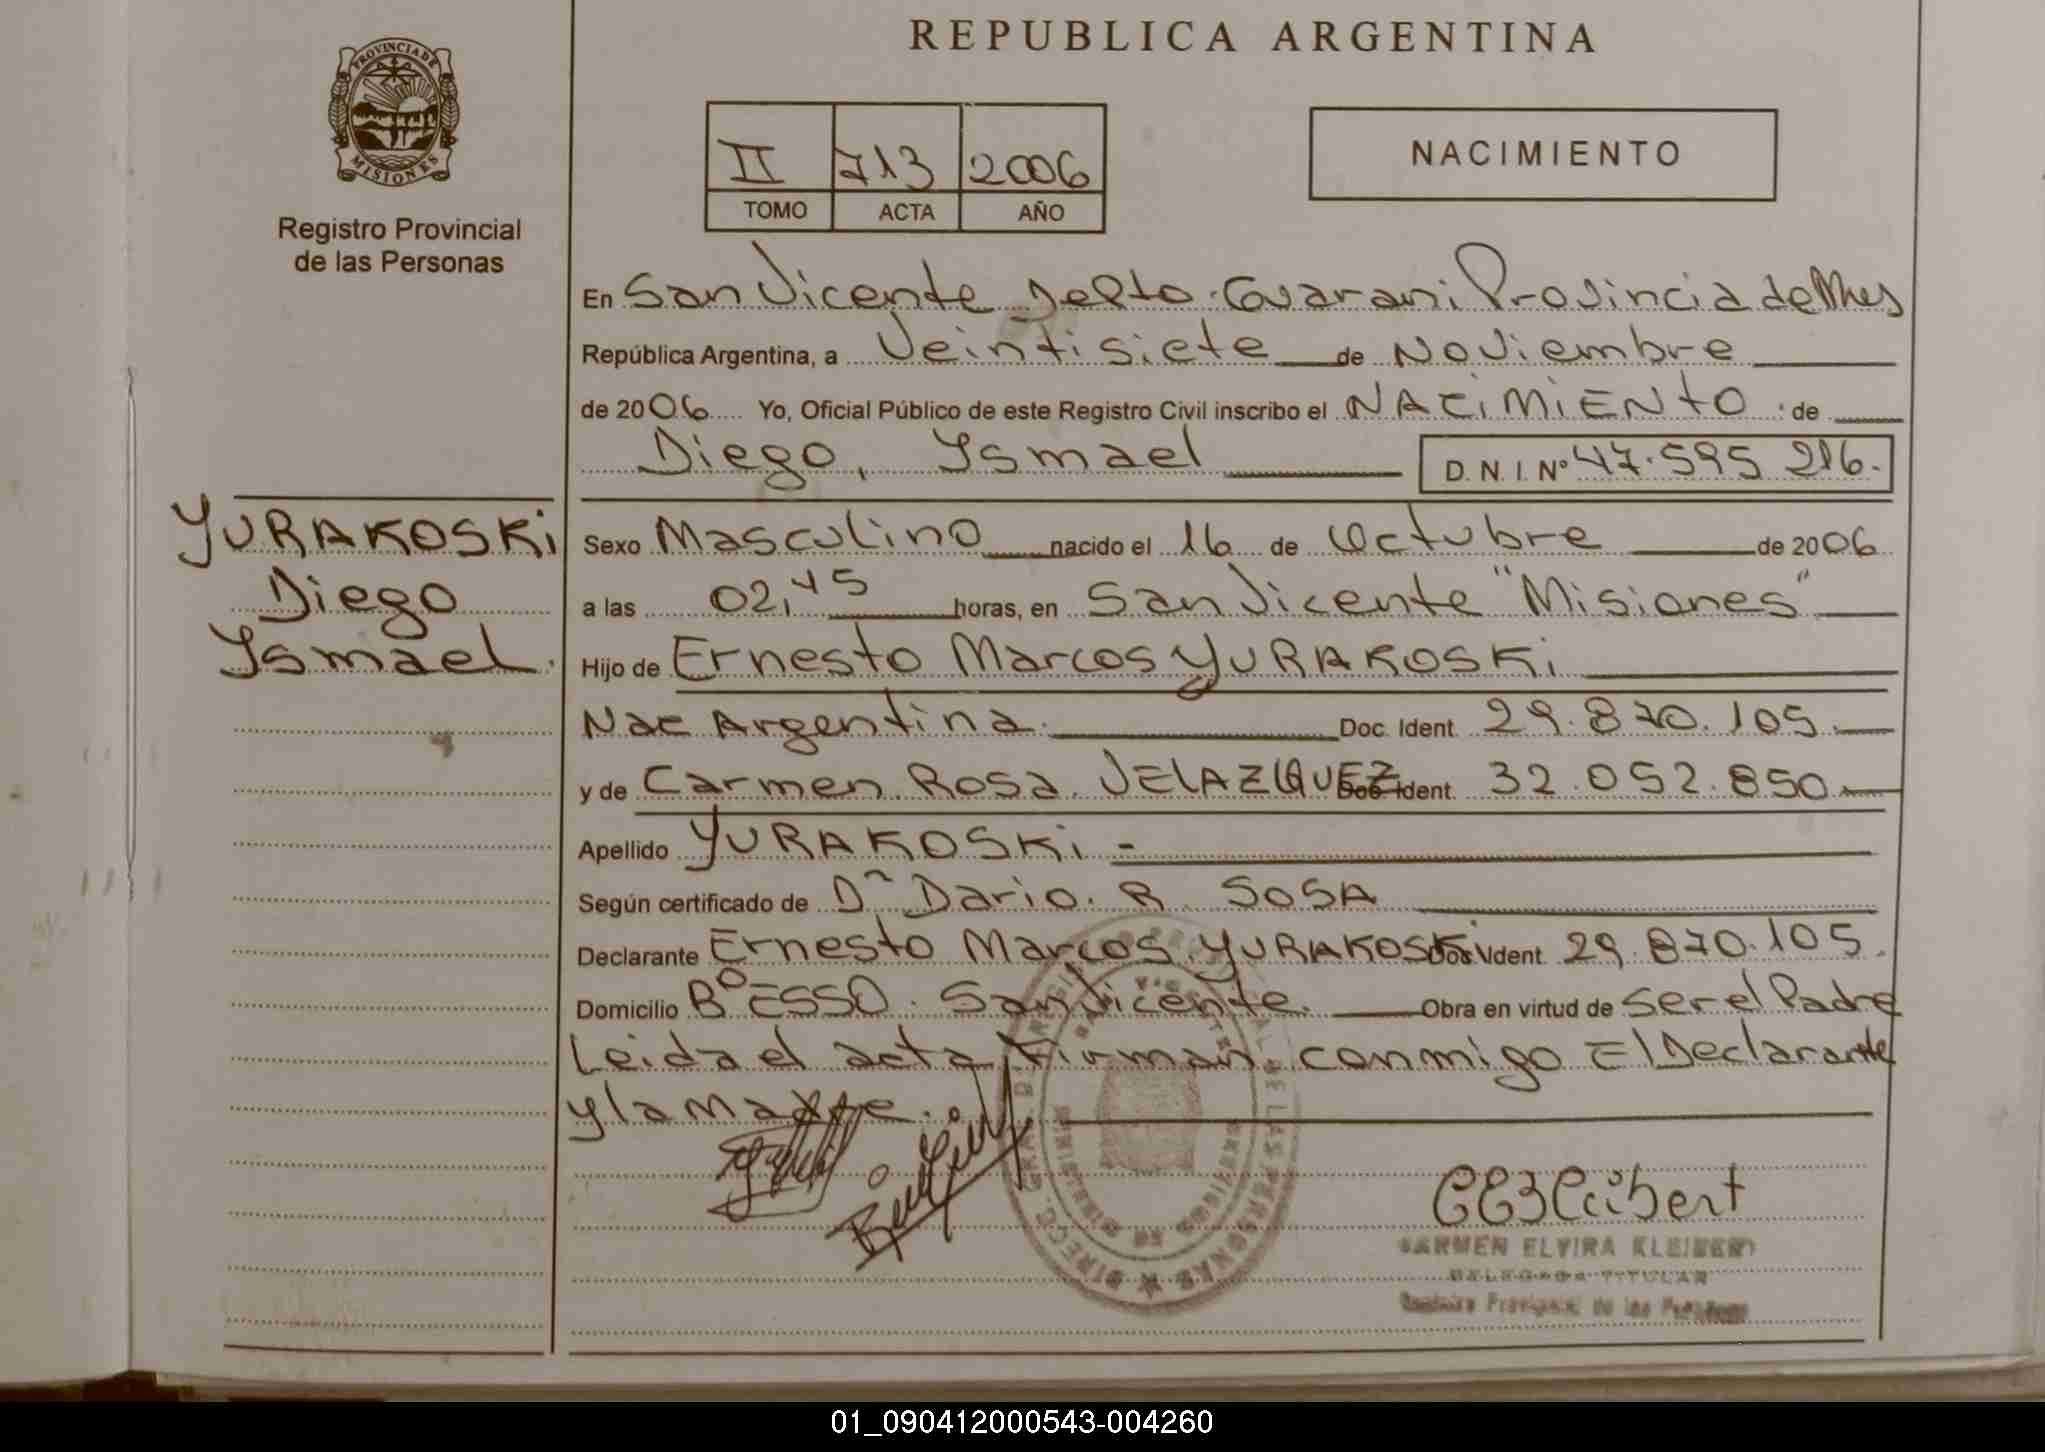 REPUBLICA ARGENTINA
PROVINCIA DE
MISIONES
Registro Provincial
de las Personas
II 713 2006
TOMO ACTA AÑO
NACIMIENTO
En San Vicente Depto. Guarani Provincia de Mnes
República Argentina, a Veintisiete de Noviembre
de 2006 Yo, Oficial Público de este Registro Civil inscribo el NACIMIENTO de
Diego, Ysmael D.N.I. Nº 47.595 216.
YURAKOSKi
Diego
Ysmael.
Sexo Masculino nacido el 16 de Octubre de 2006
a las 02,45 horas, en San Vicente "Misiones"
Hijo de Ernesto Marcos YURAKOSKi
Nac Argentina. Doc. Ident. 29.870.105.
y de Carmen Rosa VELAZQUEZ Doc. Ident. 32.052.850.
Apellido YURAKOSKi -
Según certificado de Dr Dario. R. SOSA
Declarante Ernesto Marcos YURAKOSKi Doc. Ident. 29.870.105.
Domicilio Bº ESSO. San Vicente. Obra en virtud de Ser el Padre
Leida el acta Firman conmigo El Declarante
y la Madre.
CARMEN ELVIRA KLEIBERT
DELEGADA TITULAR
Registro Provincial de las Personas
01_090412000543-004260